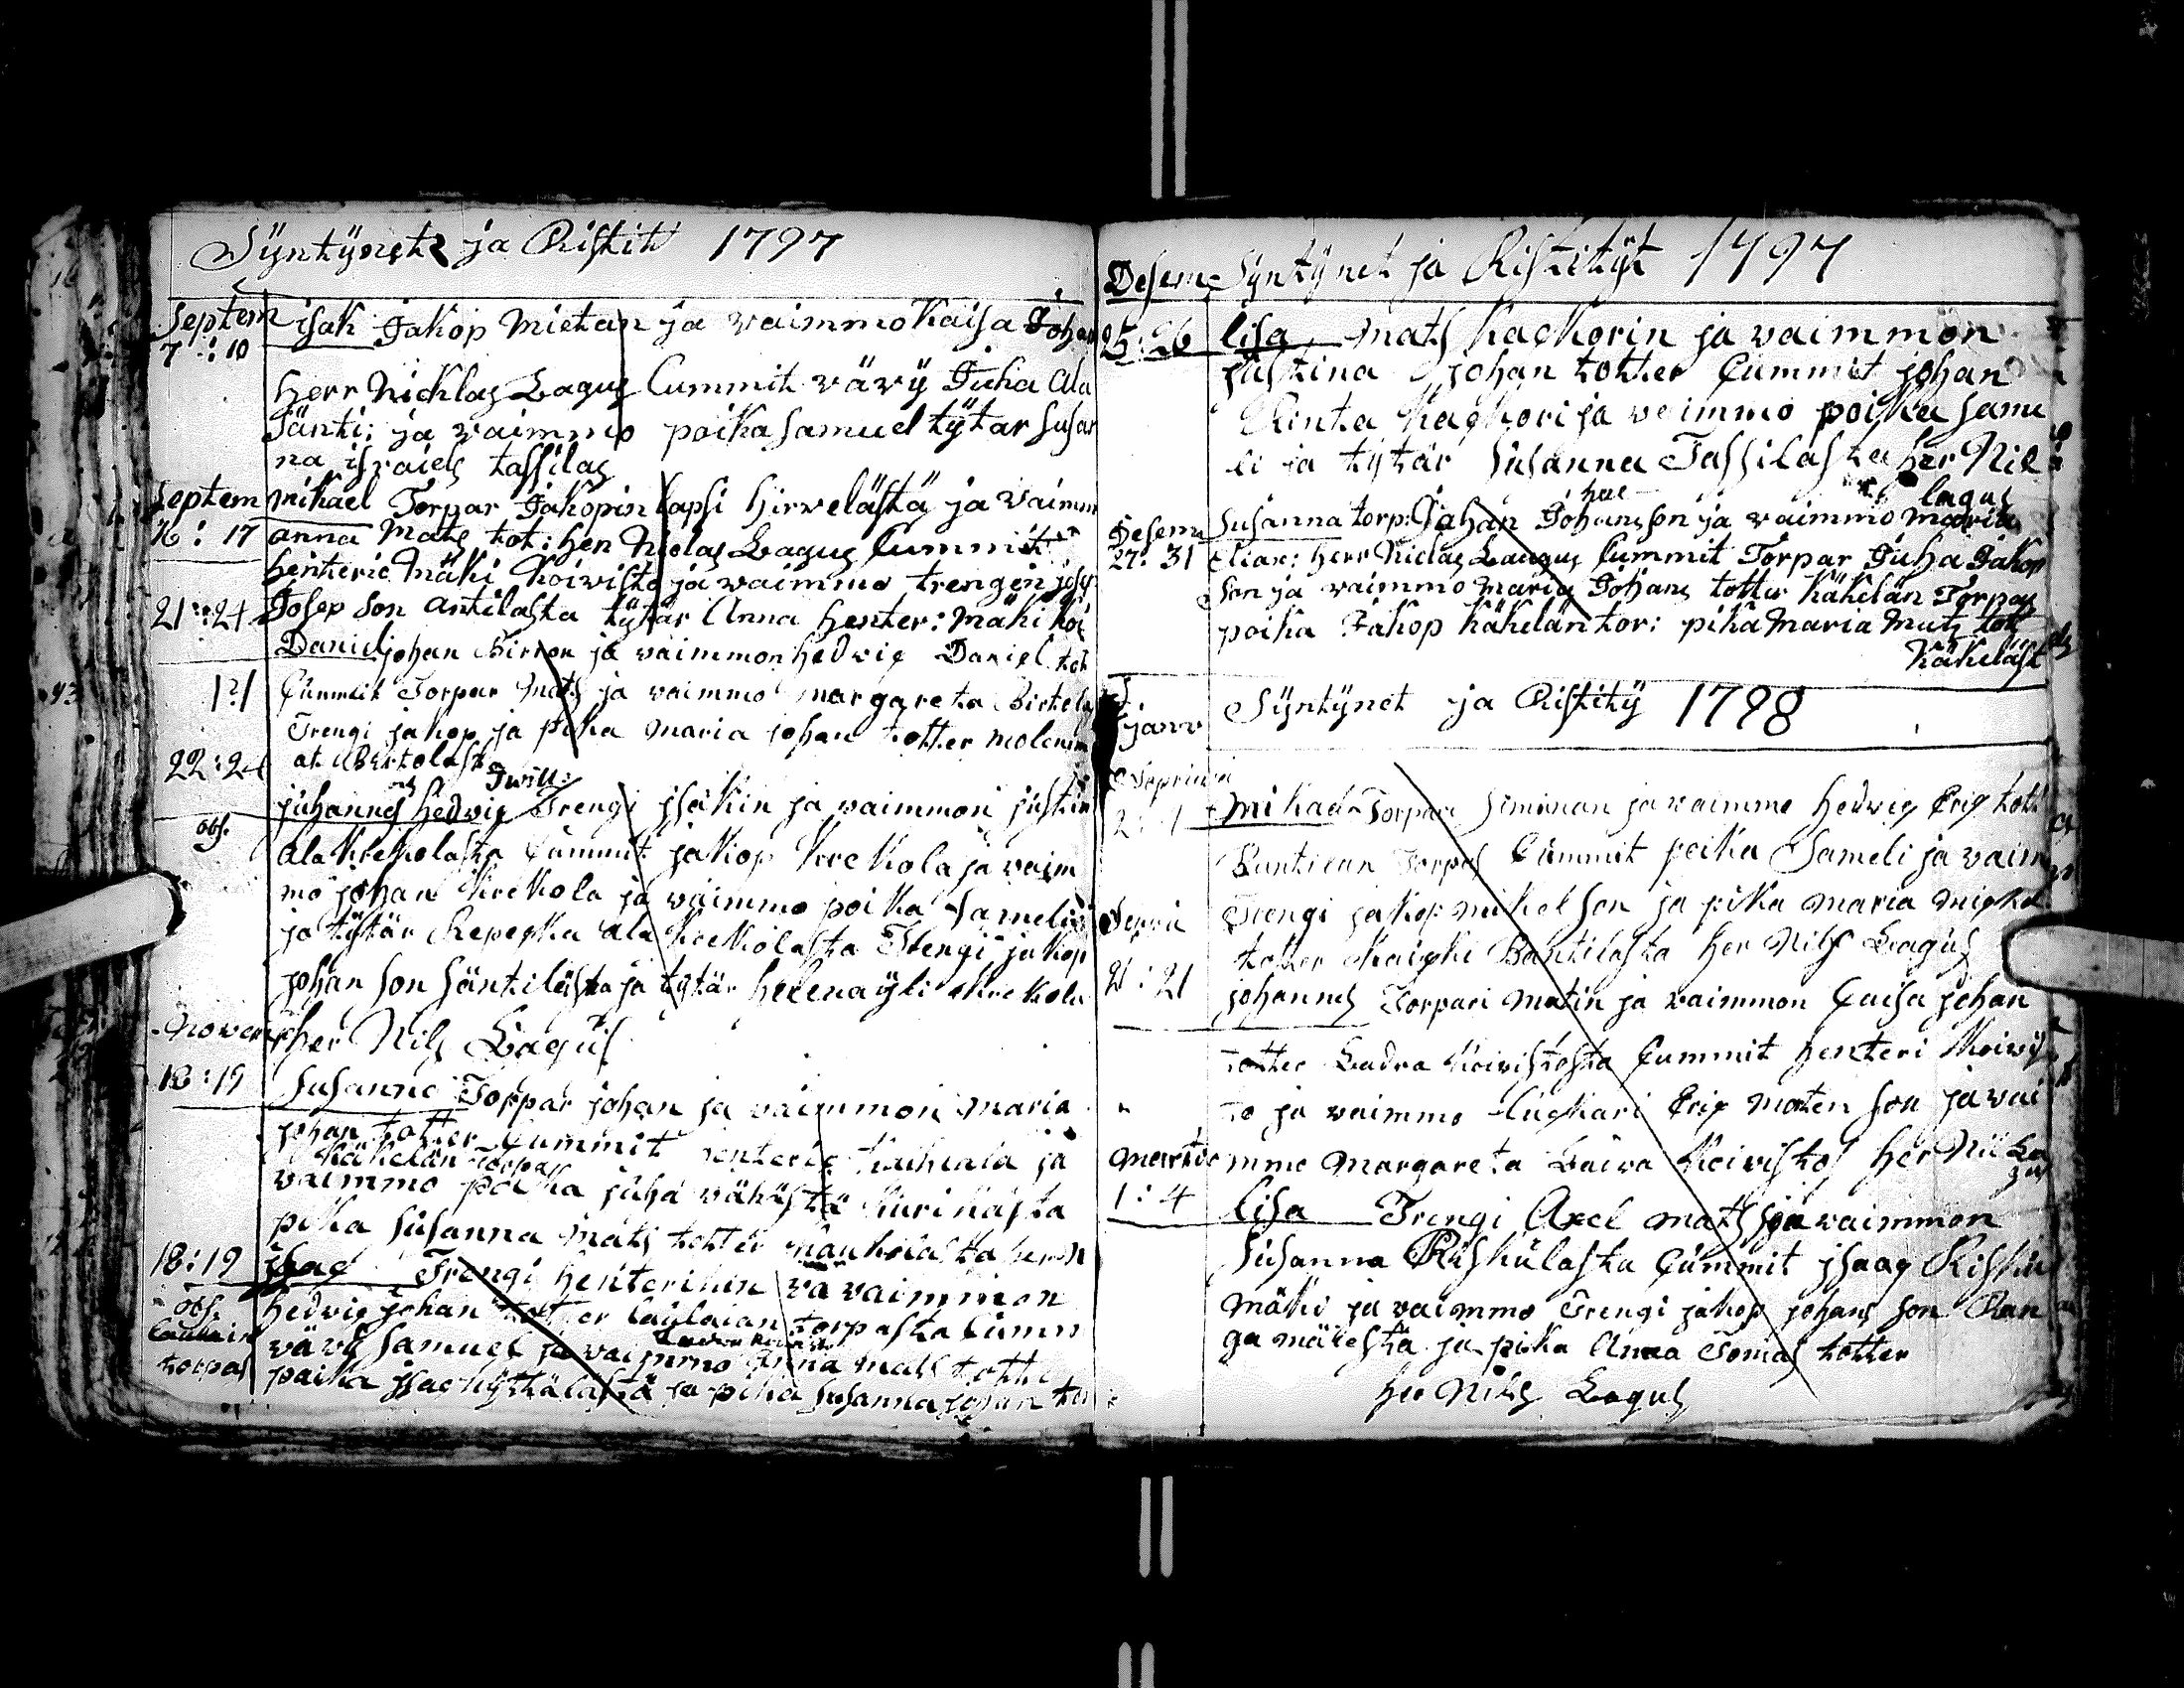 Syntynet ja Ristit 1797
Septem isak Jakop Mietan ja vaimmo Kaisa Johan
7:10
herr Nicklas Lagus Cummit vävÿ Juha ala
Sänti: ja vaimmo poika Samuel tÿtar Susan
na israels tassilas
Septem mikael Torpar Jakopin lapsi hirvelästä ja vaimm
16:17 anna Mats tot: hen Niclas Lagus Cummit
henteric Mäki Koivisto ja vaimmo trengin jose
21:24 Josep son antilasta tÿtär Anna henter: Mäki koi
Daniel johan Birron ja vaimmon hedvig Daniel tot
1?1 Cummit Torpar Mats ja vaimmo margareta Birkela
Trengi jakop ja pika maria johan totter molemm
22:24 at Abertolast
och Twill:
juhannes hedvig Trengi jsakin ja vaimmon justin
obs. ala krekolasta Cummit jakop krekola ja vaim
mo johan krekola ja vaimmo poika Sameli
ja tÿtär Repecka ala krekolasta Trengi jakop
johan son Säntilästa ja tytär helena ÿli krekola
Novem her Nils Lagus
18:19 Susanna Torpar johan ja vaimmon maria
johan totter Cummit henteric ja
Käkelän Torpar
vaimmo poika juha vähästä Kurikasta
pika Susanna Mats totter
18:19 jsac Trengi henterikin ja vaimmon
obs. hedvig johan totter laylaian torpasta Cumm
vävÿ Samuel ja vaimmo Anna mats totte
torpas paika jsac kÿttälästä ja pika Susanna johan tot
Desem: Syntynet ja Ristitÿt 1797
25:26 lisa mats kackorin ja vaimmon
justina johan totter Cummit johan
Rinta kackori ja vaimmo poika Same
li ja tytär Susanna Tassilasta her Nils
lagus
Desem Susanna torp: Johan Johansson ja vaimmo Maria
27:31 Eliae: herr Niclas Laugus Cummit Torpar Juha Jakop
son ja vaimmo maria Johans totter käkelän Torpas
poika Jakop käkelän tor: pika Maria Mats tott
käkeläst
janv Sÿntÿnet ja Ristitÿ 1798
mikael Torpari Simunan ja vaimmo hedvig Erig tott
Torpas Cummit poika Sameli ja vaim
Trengi jakop mikelson ja pika maria mickel
totter Bantilasta her Nils Lagus
21:21 johannes Torpari matin ja vaimmon Caisa johan
totter Ladva koivistosta Cummit henteri Koivis
to ja vaimmo Erig maten son ja vai
martio mmo margareta koivistos her Nil La
gus
1:4 lisa Trengi Axel mats ja vaimmon
Susanna Riskulasta Cummit jsaag Risku
mäki ja vaimmo Trengi jakop johans son Ran
ga mäkestä ja pika Anna Tomas totter
her Nils Lagus